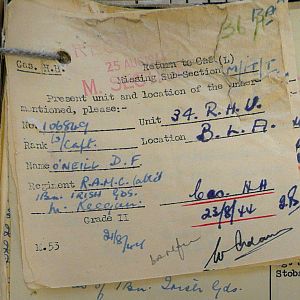 Cas. N.H.
25 AUG
Return to Cas.(L)
Missing Sub-Section
Present unit and location of the under
mentioned, please:-
No. 106869
Unit 34. R.H.U.
Rank Capt.
Location B.L.A.
Name O'NEILL D.F.
Regiment R.A.M.C. (att'd
1Bn. IRISH Gds.
Cas. N.H
Grade II
23/8/44
M.53
21/8/44
1 Bn. Irish Gds.
Stobs